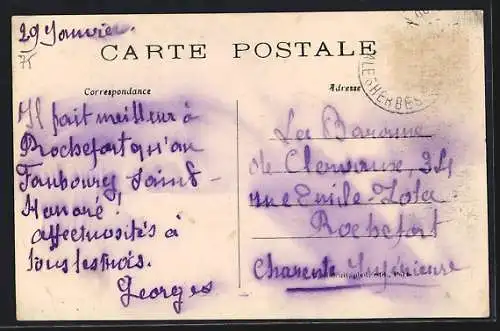 29 Janvier.
75
CARTE POSTALE
Correspondance
Adresse
MALESHERBES
Il fait meilleur à
Rochefort qu'au
Faubourg Saint-
Honoré!
affectuosités à
tous les trois.
Georges
La Baronne
de Clervaux, 34
rue Emile-Zola
Rochefort
Charente Inférieure